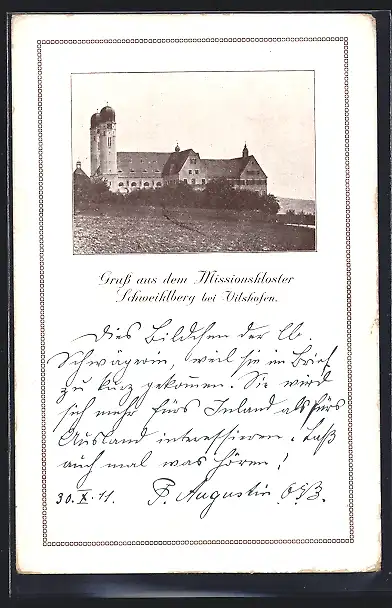 Gruß aus dem Missionskloster
Schweiklberg bei Vilshofen.
Dies Bildchen der lb.
Schwägerin, weil sie im Brief
zu kurz gekommen. Sie wird
sich mehr fürs Inland als fürs
Ausland interessieren. Laß
auch mal was hören!
30.X.11. P. Augustin O.S.B.